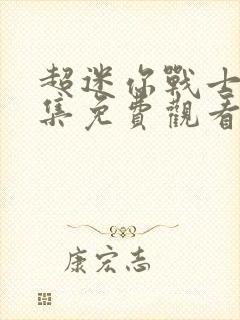 超迷你戰士
集免費觀看
康宏志